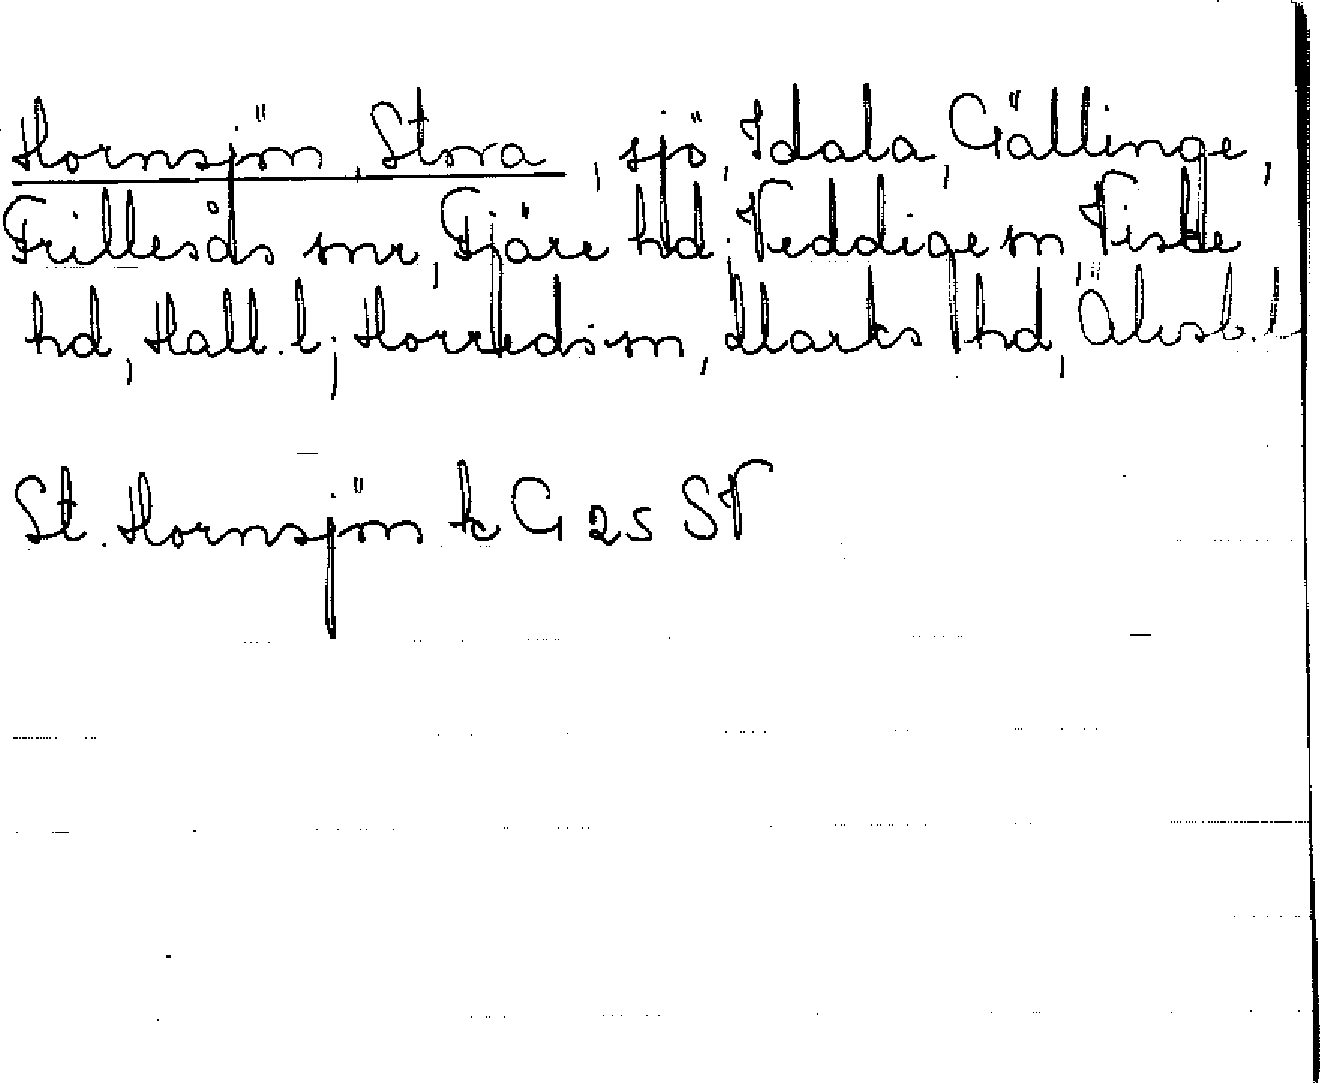 Hornsjön, Stora, sjö, Idala, Gällinge,
Frillesås snr, Fjäre hd; Veddige sn Viske
hd, Hall. l; Horreds sn, Marks hd, Älvsb. l
St. Hornsjön k G 25 SV